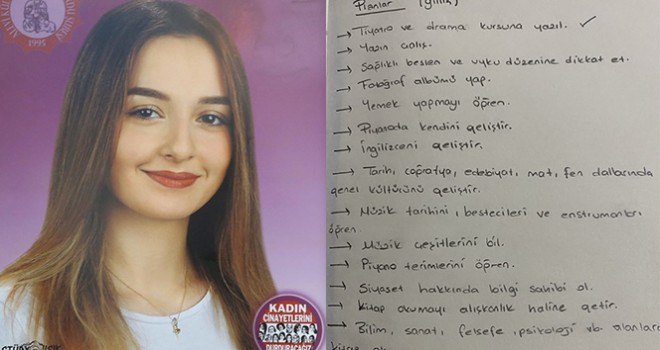 1995
KADIN
CİNAYETLERİNİ
DURDURACAĞIZ
Planlar (günlük)
→ Tiyatro ve drama kursuna yazıl. ✓
→ Yazın çalış.
→ Sağlıklı beslen ve uyku düzenine dikkat et.
→ Fotoğraf albümü yap.
→ Yemek yapmayı öğren.
→ Piyasada kendini geliştir.
→ İngilizceni geliştir.
→ Tarih, coğrafya, edebiyat, mat, fen dallarında
genel kültürünü geliştir.
→ Müzik tarihini, bestecileri ve enstrumanları
öğren.
→ Müzik çeşitlerini bil.
→ Piyano terimlerini öğren.
→ Siyaset hakkında bilgi sahibi ol.
→ Kitap okumayı alışkanlık haline getir.
→ Bilim, sanat, felsefe, psikoloji vb. alanlara